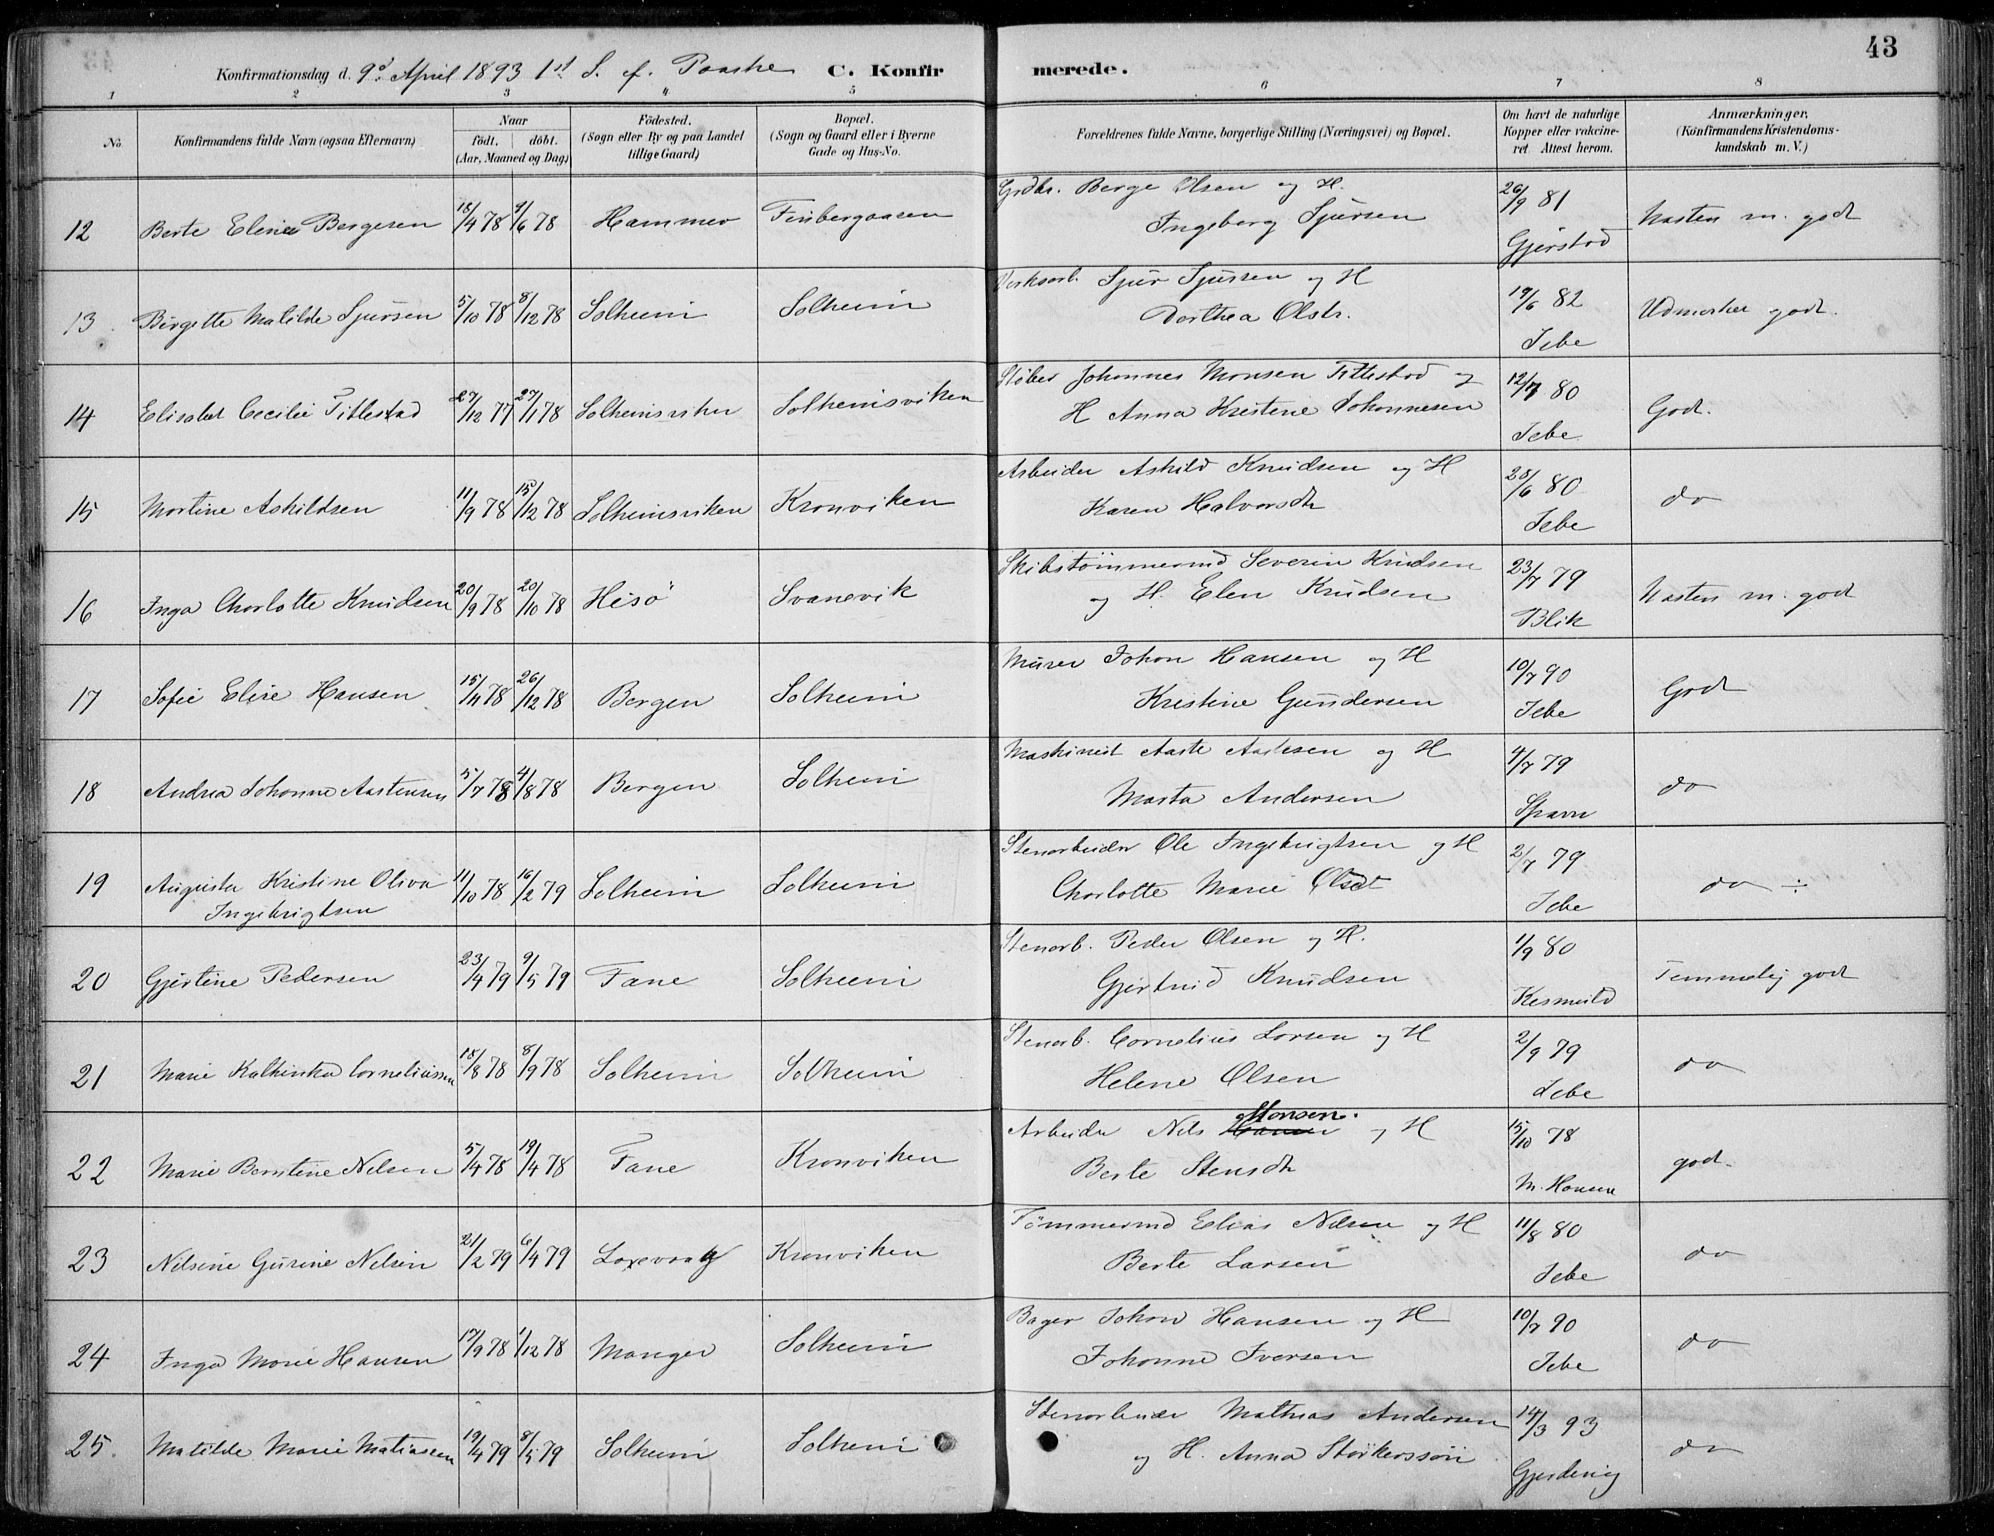 43
Konfirmationsdag d. 9d April 1893 1st S. e. Paaske C. Konfirmerede.
1 2 3 4 5 6 7 8
No. Konfirmandens fulde Navn (ogsaa Efternavn) Naar födt. döbt. (Aar, Maaned og Dag) Födested. (Sogn eller By og paa Landet tillige Gaard) Bopæl. (Sogn og Gaard eller i Byerne Gade og Hus-No. Forældrenes fulde Navne, borgerlige Stilling (Næringsvei) og Bopæl. Om havt de naturlige Kopper eller vakcineret Attest herom. Anmærkninger. (Konfirmandens Kristendomskundskab m. V.)
12 Berte Eline Bergesen 18/4 78 9/6 78 Hammer Finbergaasen Grdbr. Berge Olsen og H. Ingeborg Sjursen 26/9 81 Gjerstad Næsten m. godt
13 Birgette Matilde Sjursen 5/10 78 8/12 78 Solheim Solheim Verksarb. Sjur Sjursen og H Dorthea Olstr. 19/6 82 Jebe Udmerket godt.
14 Elisabet Cecilie Tittestad 27/12 77 27/1 78 Solheimsviken Solheimsviken Støber Johannes Monsen Tittestad og H Anna Kristine Johannesen 12/7 80 Jebe Godt.
15 Martine Askildsen 11/9 78 15/12 78 Solheimsviken Kronviken Arbeider Askild Knudsen og H Karen Halvorsdtr 28/6 80 Jebe do
16 Inga Charlotte Knudsen 20/9 78 20/10 78 Hisö Svanevik Skibstömmermd Severin Knudsen og H. Elen Knudsen 23/7 79 Blik Næsten m. godt
17 Sofie Elise Hansen 15/11 78 26/12 78 Bergen Solheim Murer Johan Hansen og H Kristine Gundersen 10/7 90 Jebe Godt
18 Andrea Johanne Aastensen 5/7 78 4/8 78 Bergen Solheim Maskinist Aaste Aastesen og H Marta Andersen 4/7 79 Sparre do
19 Augusta Kristine Oliva Ingebrigtsen 11/10 78 16/2 79 Solheim Solheim Stenarbeider Ole Ingebrigtsen og H Charlotte Marie Olsdt 2/7 79 Jebe do ÷
20 Gjertine Pedersen 23/4 79 9/5 79 Fane Solheim Stenarb. Peder Olsen og H. Gjertrud Knudsen 1/9 80 Temmelig godt
21 Marie Kathinka Corneliussen 18/8 78 8/9 78 Solheim Solheim Stenarb. Cornelius Larsen og H Helene Olsen 2/9 79 Jebe do
22 Marie Berntine Nilsen 5/4 78 19/4 78 Fane Kronviken Arbeider Nils Monsen. og H Berte Stensdtr 15/10 78 M. Hansen godt.
23 Nilsine Gurine Nilsen 21/2 79 6/4 79 Laxevaag Kronviken Tömmermd Elias Nilsen og H Berte Larsen 11/8 80 Jebe do
24 Inga Marie Hansen 17/9 78 1/12 78 Manger Solheim Bager Johan Hansen og H Johanne Iversen 10/7 90 Jebe do
25. Matilde Marie Matiasen 19/4 79 8/5 79 Solheim Solheim Stenarbeider Mathias Andersen og H. Anna Storkerssön 14/3 93 do